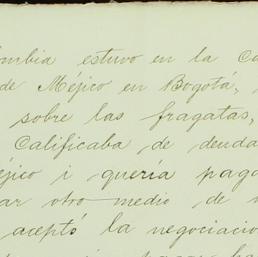 ombia estuvo en la Ca
de Méjico en Bogotá,
sobre las fragatas,
Calificaba de deuda
éjico i quería paga
ar otro medio de
aceptó la negociacio